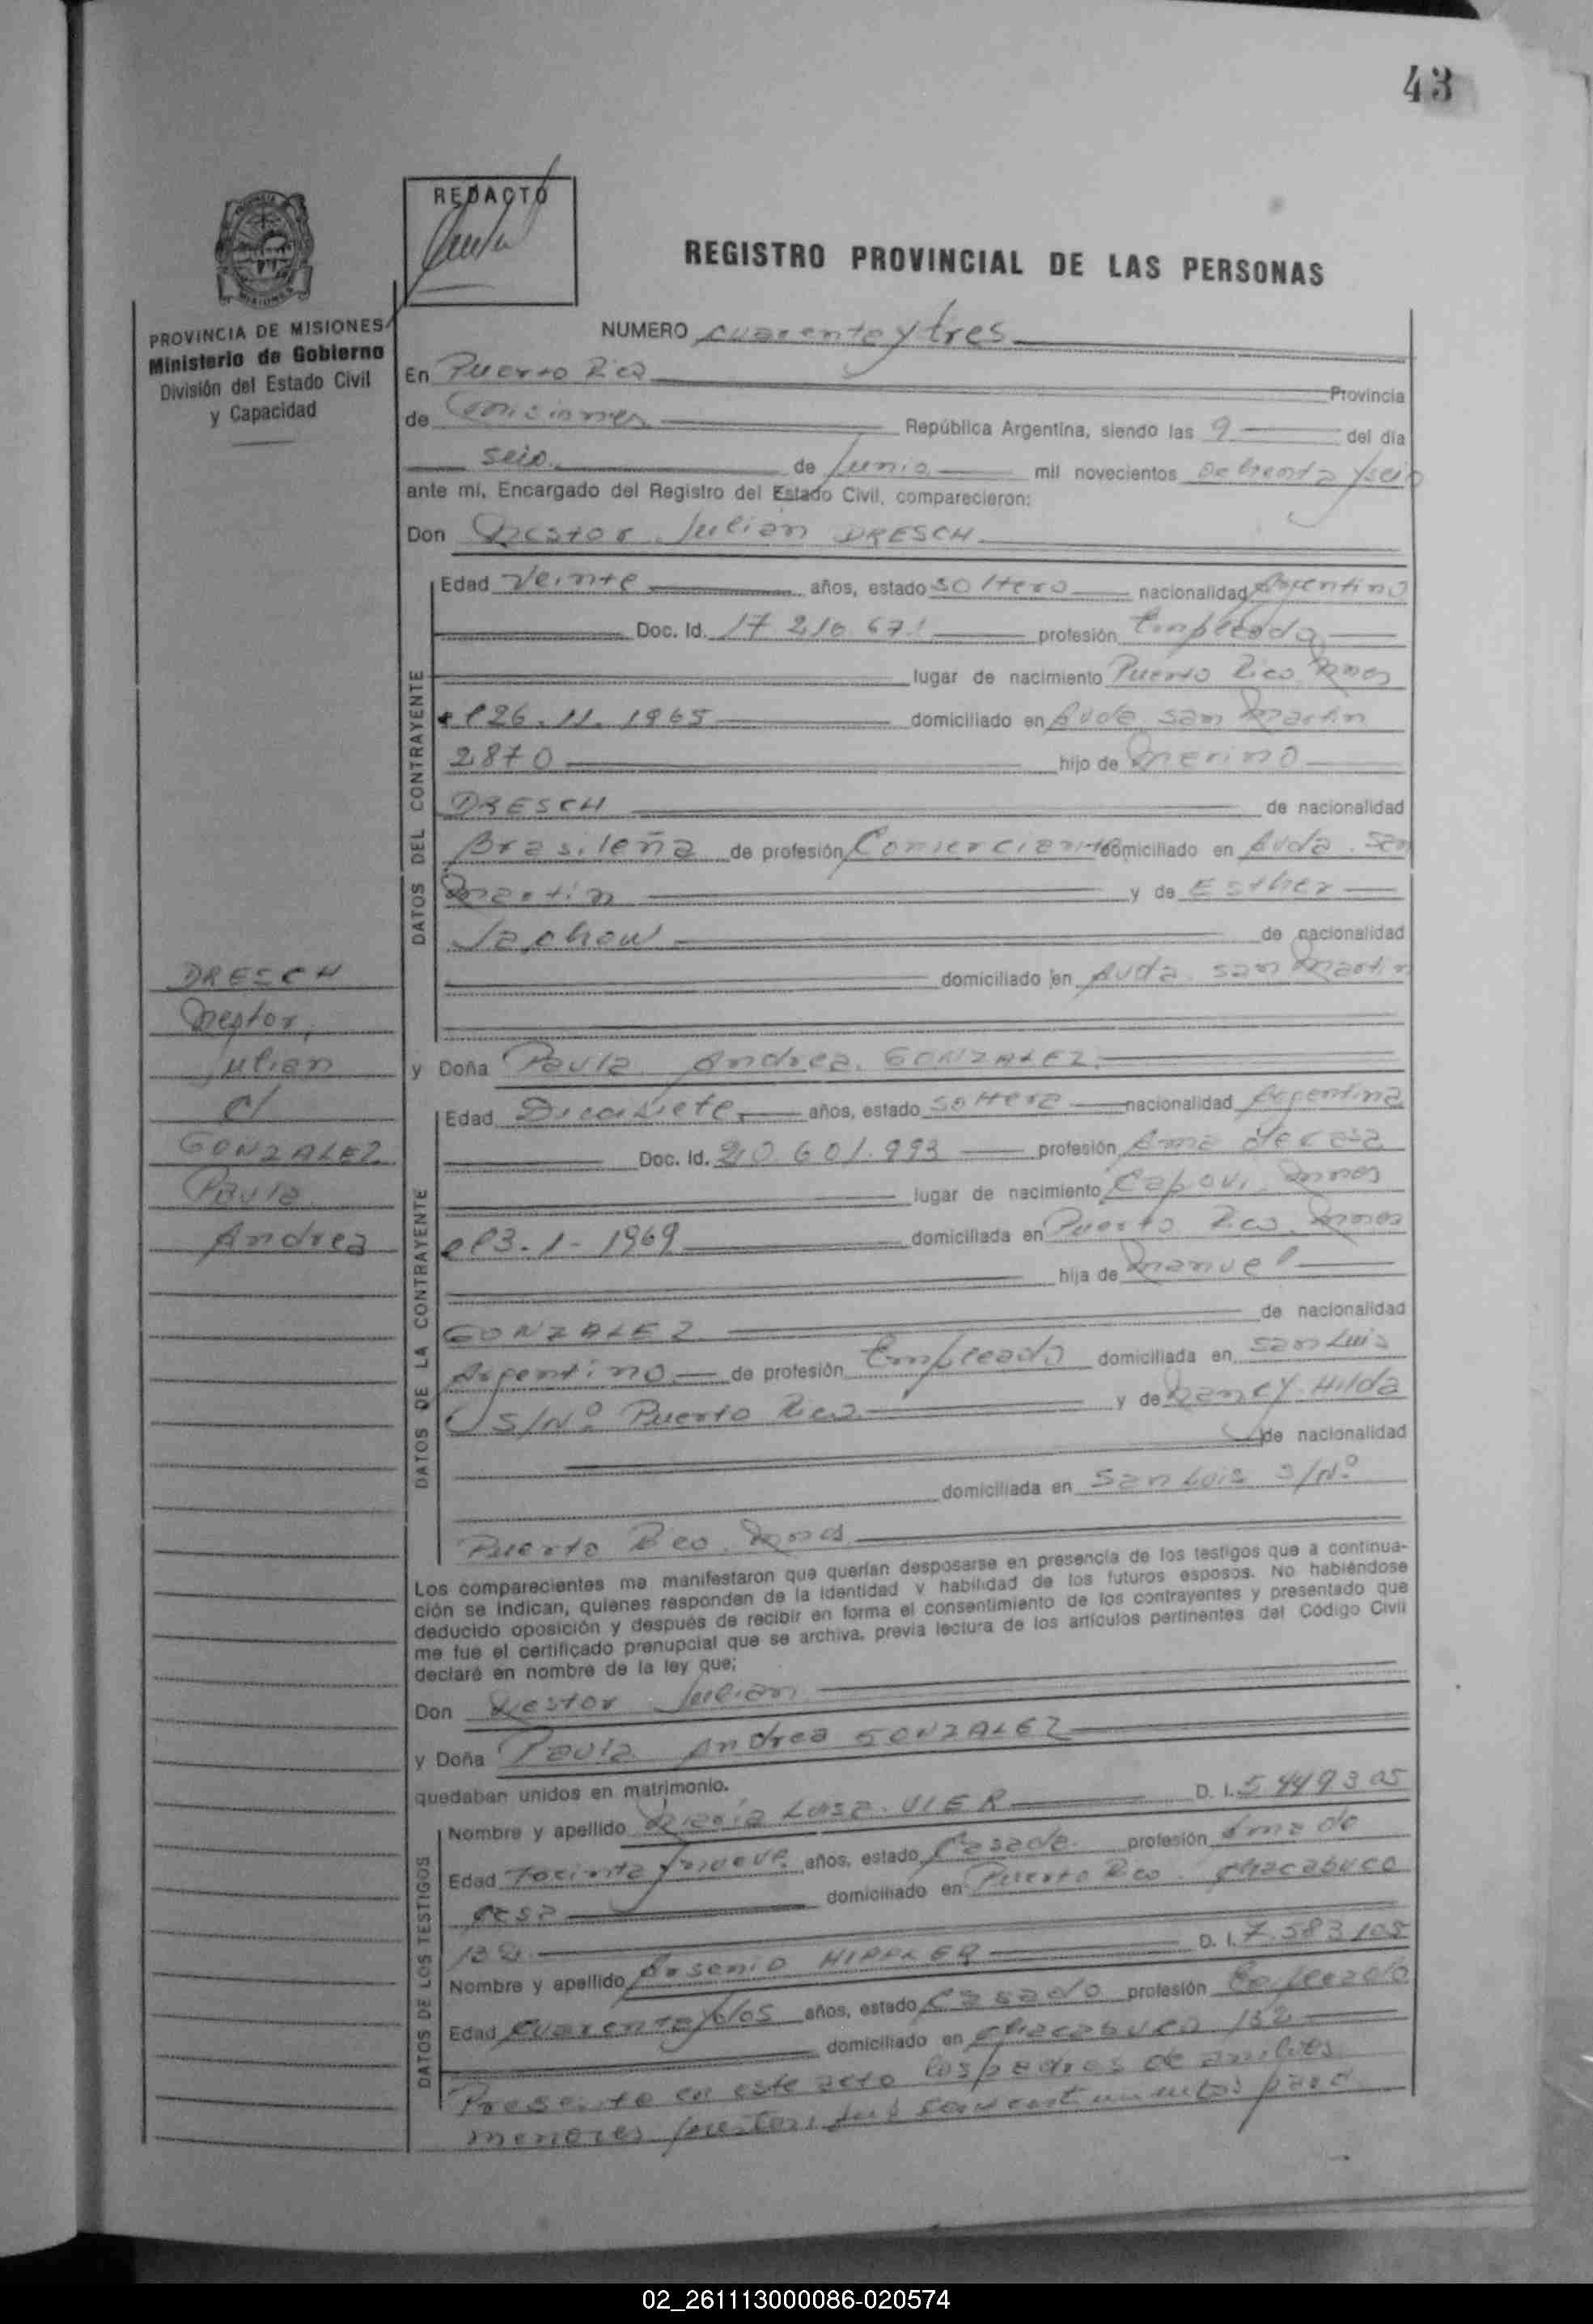 43
REDACTO
REGISTRO PROVINCIAL DE LAS PERSONAS
PROVINCIA DE MISIONES
Ministerio de Gobierno
División del Estado Civil
y Capacidad
NUMERO cuarenta y tres
En Puerto Rico Provincia
de Misiones República Argentina, siendo las 9 del día
seis de Junio mil novecientos ochenta y seis
ante mí, Encargado del Registro del Estado Civil, comparecieron:
Don Nestor Julian DRESCH
Edad Veinte años, estado soltero nacionalidad Argentino
Doc. Id. 17 210 671 profesión Empleado
lugar de nacimiento Puerto Rico Mnes
el 26.11.1965 domiciliado en Avda San Martin
2870 hijo de Merino
DRESCH de nacionalidad
Brasileña de profesión Comerciante domiciliado en Avda. San
Martin y de Esther
de nacionalidad
domiciliado en Avda. San Martin
y Doña Paula Andrea GONZALEZ
Edad Diecisiete años, estado soltera nacionalidad Argentina
Doc. Id. 20 601.993 profesión Ama de casa
lugar de nacimiento Capovi Mnes
el 3-1-1969 domiciliada en Puerto Rico. Mnes
hija de Manuel
GONZALEZ de nacionalidad
Argentino de profesión Empleado domiciliada en San Luis
S/Nº Puerto Rico y de Nancy Hilda
de nacionalidad
domiciliada en San Luis S/Nº
Puerto Rco. Mnes
Los comparecientes me manifestaron que querían desposarse en presencia de los testigos que a continua-
ción se indican, quienes responden de la identidad y habilidad de los futuros esposos. No habiéndose
deducido oposición y después de recibir en forma el consentimiento de los contrayentes y presentado que
me fue el certificado prenupcial que se archiva, previa lectura de los artículos pertinentes del Código Civil
declaré en nombre de la ley que;
Don Nestor Julian
y Doña Paula Andrea GONZALEZ
quedaban unidos en matrimonio.
Nombre y apellido María Luisa VIER D. I. 5 449 3 05
Edad Treinta y nueve años, estado Casada profesión Ama de
casa domiciliado en Puerto Rco. Chacabuco
132
Nombre y apellido Arsenio HIPPLER D. I. 7.583 105
Edad cuarenta y dos años, estado Casado profesión Empleado
domiciliado en Chacabuco 132
Presente en este acto los padres de ambos
menores prestan sus consentimientos para
DATOS DEL CONTRAYENTE
DATOS DE LA CONTRAYENTE
DATOS DE LOS TESTIGOS
DRESCH
Nestor,
Julian
c/
GONZALEZ
Paula
Andrea
02_261113000086-020574